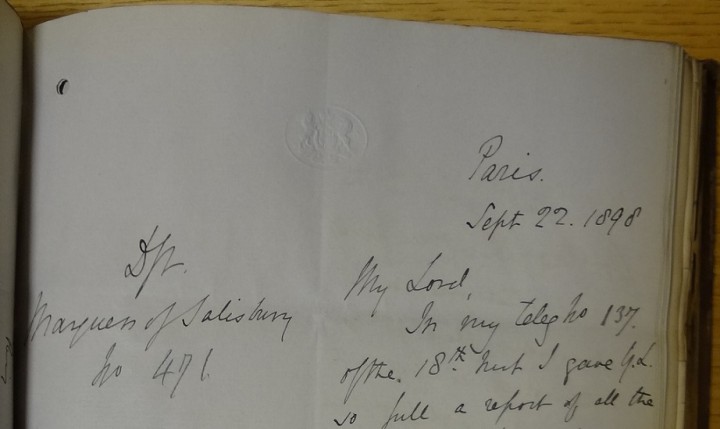 Paris.
Sept 22. 1898
Dft.
Marquess of Salisbury
No 471.
My Lord,
In my teleg No 137.
of the 18th inst I gave Y.L.
so full a report of all the